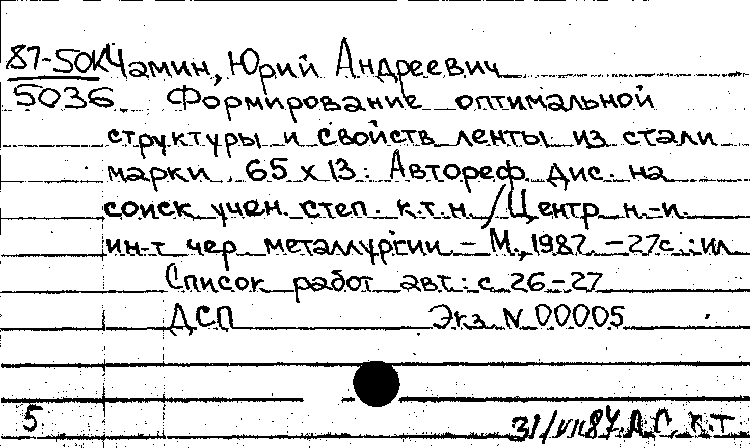 87-50К Чамин, Юрий Андреевич
5036 Формирование оптимальной
структуры и свойств ленты из стали
марки 65х13: Автореф. дис. на
соиск. учен. степ. к.т.н. / Центр. н.-и.
ин-т чер. металлургии. - М., 1987. - 27с.: ил
Список работ авт.: с. 26-27
ДСП Экз. N 00005
5 31/VII 87